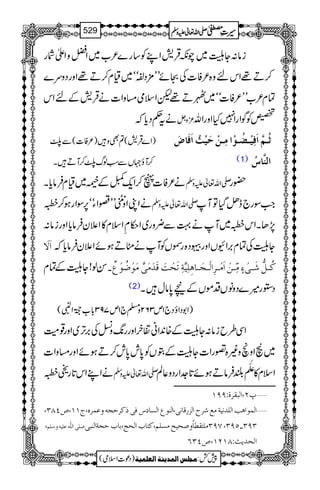 سیرتِ مصطفی صلی اللہ تعالیٰ علیہ وسلم 529
زمانہ جاہلیت میں چونکہ قریش اپنے کو سارے عرب میں افضل و اعلیٰ شمار
کرتے تھے اس لئے وہ عرفات کی بجائے ’’مزدلفہ‘‘ میں قیام کرتے تھے اور دوسرے
تمام عرب ’’عرفات‘‘ میں ٹھہرتے تھے لیکن اسلامی مساوات نے قریش کے لئے اس
تخصیص کو گوارا نہیں کیا اور اللہ عزوجل نے یہ حکم دیا کہ
ثُمَّ اَفِیْضُوْا مِنْ حَیْثُ اَفَاضَ (اے قریش) تم بھی وہیں (عرفات) سے پلٹ
النَّاسُ (1) کر آؤ جہاں سے سب لوگ پلٹ کر آتے ہیں۔
حضور صلی اللہ تعالیٰ علیہ وسلم نے عرفات پہنچ کر ایک کمبل کے خیمہ میں قیام فرمایا۔
جب سورج ڈھل گیا تو آپ صلی اللہ تعالیٰ علیہ وسلم نے اپنی اونٹنی ’’قصواء‘‘ پر سوار ہو کر خطبہ
پڑھا۔ اس خطبہ میں آپ نے بہت سے ضروری احکام اسلام کا اعلان فرمایا اور زمانہ
جاہلیت کی تمام برائیوں اور بیہودہ رسموں کو آپ نے مٹاتے ہوئے اعلان فرمایا کہ اَلَا
کُلُّ شَیْءٍ مِّنْ اَمْرِ الْجَاھِلِیَّۃِ تَحْتَ قَدَمَیَّ مَوْضُوْعٌ۔ سن لو! جاہلیت کے تمام
دستور میرے دونوں قدموں کے نیچے پامال ہیں۔ (2)
(ابوداؤد ج۱ ص۲۶۳ و مسلم ج۱ ص۳۹۷ باب حجۃ النبی)
اسی طرح زمانہ جاہلیت کے خاندانی تفاخر اور رنگ و نسل کی برتری اور قومیت
میں نیچ اونچ وغیرہ تصورات جاہلیت کے بتوں کو پاش پاش کرتے ہوئے اور مساوات
اسلام کا عَلَم بلند فرماتے ہوئے تاجدار دو عالم صلی اللہ تعالیٰ علیہ وسلم نے اپنے اس تاریخی خطبہ
……پ۲، البقرۃ: ۱۹۹
……المواھب اللدنیۃ مع شرح الزرقانی، النوع السادس فی ذکر حجہ و عمرہ، ج۱۱، ص۳۸۴،
۳۹۳، ۳۹۵، ۳۹۷ ملتقطاً و صحیح مسلم، کتاب الحج، باب حجۃ النبی صلی اللہ علیہ وسلم،
الحدیث: ۱۲۱۸، ص۶۳۴
پیش کش: مجلس المدینۃ العلمیۃ (دعوتِ اسلامی)